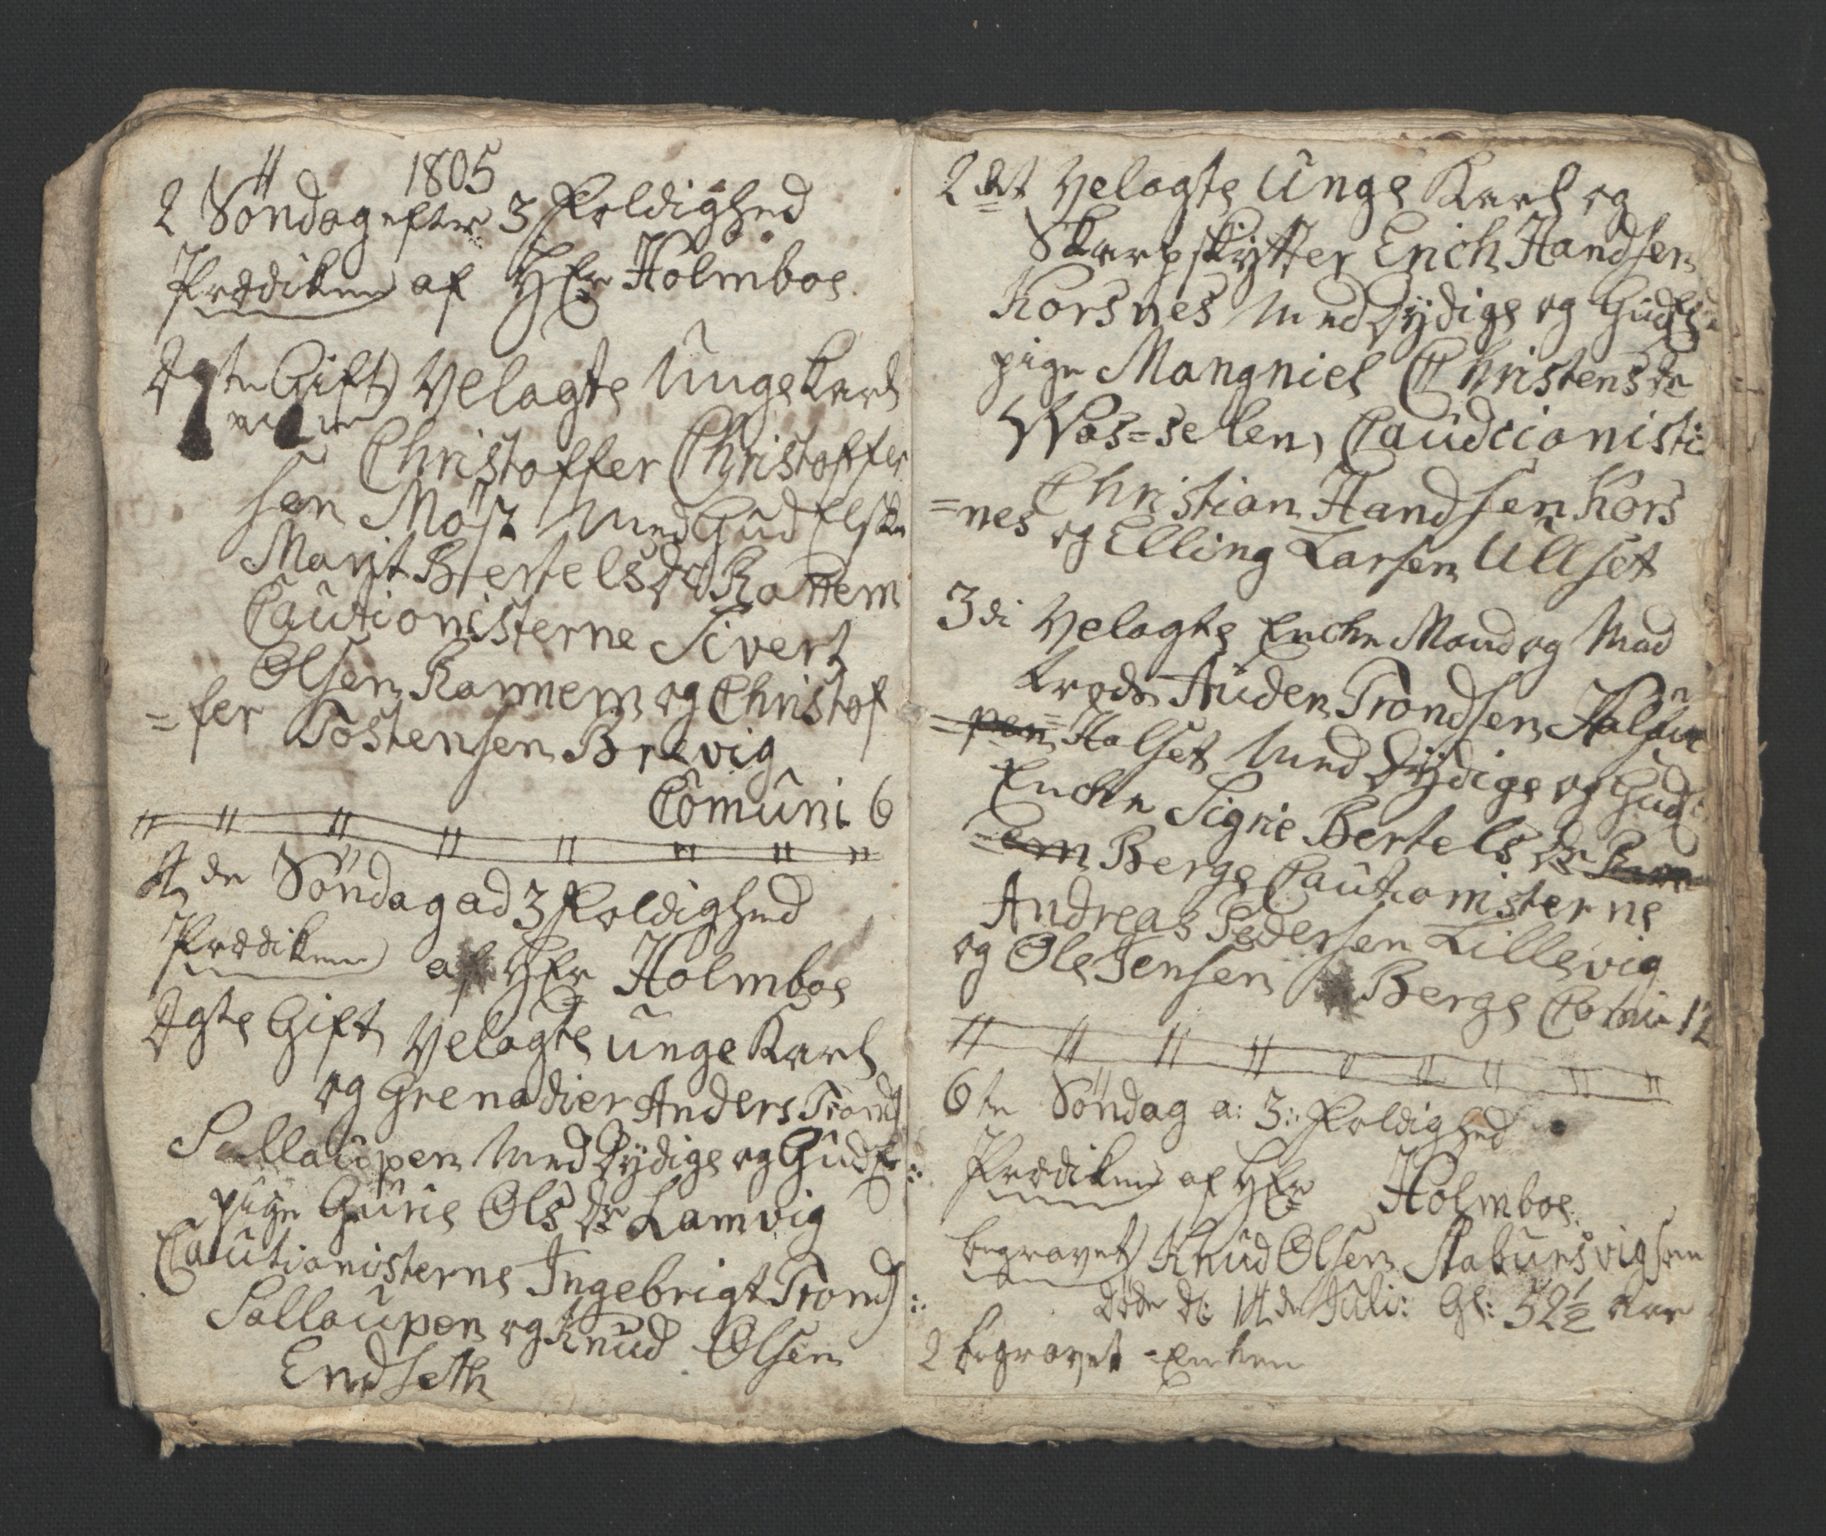 1805
2 Söndag efter 3 Foldighed
Prædiken af Hr Holmboe
Ægte Gift Velagte Unge Karl
Christoffer Christoffer
sen Möst med Gud Elsk
Marit Bertels dr Rottem
Cautionisterne Sivert
Olsen Rannem og Christof
=fer Tostensen Brevig
Comuni 6
4 de Söndag ad 3 Foldighed
Prædiken af Hr Holmboe
Ægte Gift Velagte unge Karl
og Grenadier Anders Trond
Sollaupen med Dydige og Gudf:
pige Gurie Ols dr Lamvig
Cautionisterne Ingebrigt Trond:
Sollaupen og Knud Olsen
Endseth
2 det Velagte Unge Karl og
Skarpskytter Erich Handsen
Korsnes med Dydige og Gudf
pige Mangniel Christens dr
Wos=selen Caudcionisti
Christian Handsen Kors
=nes og Elling Larsen Ullset
3 di Velagte Encke Mand og Mad
Auden Trondsen
=pen= Halset med Dydige og Gudf
Encke Sigrie Bertels dr
=em Berge Cautionisterne
Andreas Pedersen Lillevig
og Ole Jensen Berge Comu 12
6 te Söndag a: 3: Foldighed
Prædiken af Hr Holmboe
begravet Knud Olsen Stabursvigsen
döde d: 14 de Juli: Gl: 52 1/2 aar
2 begravet Encken